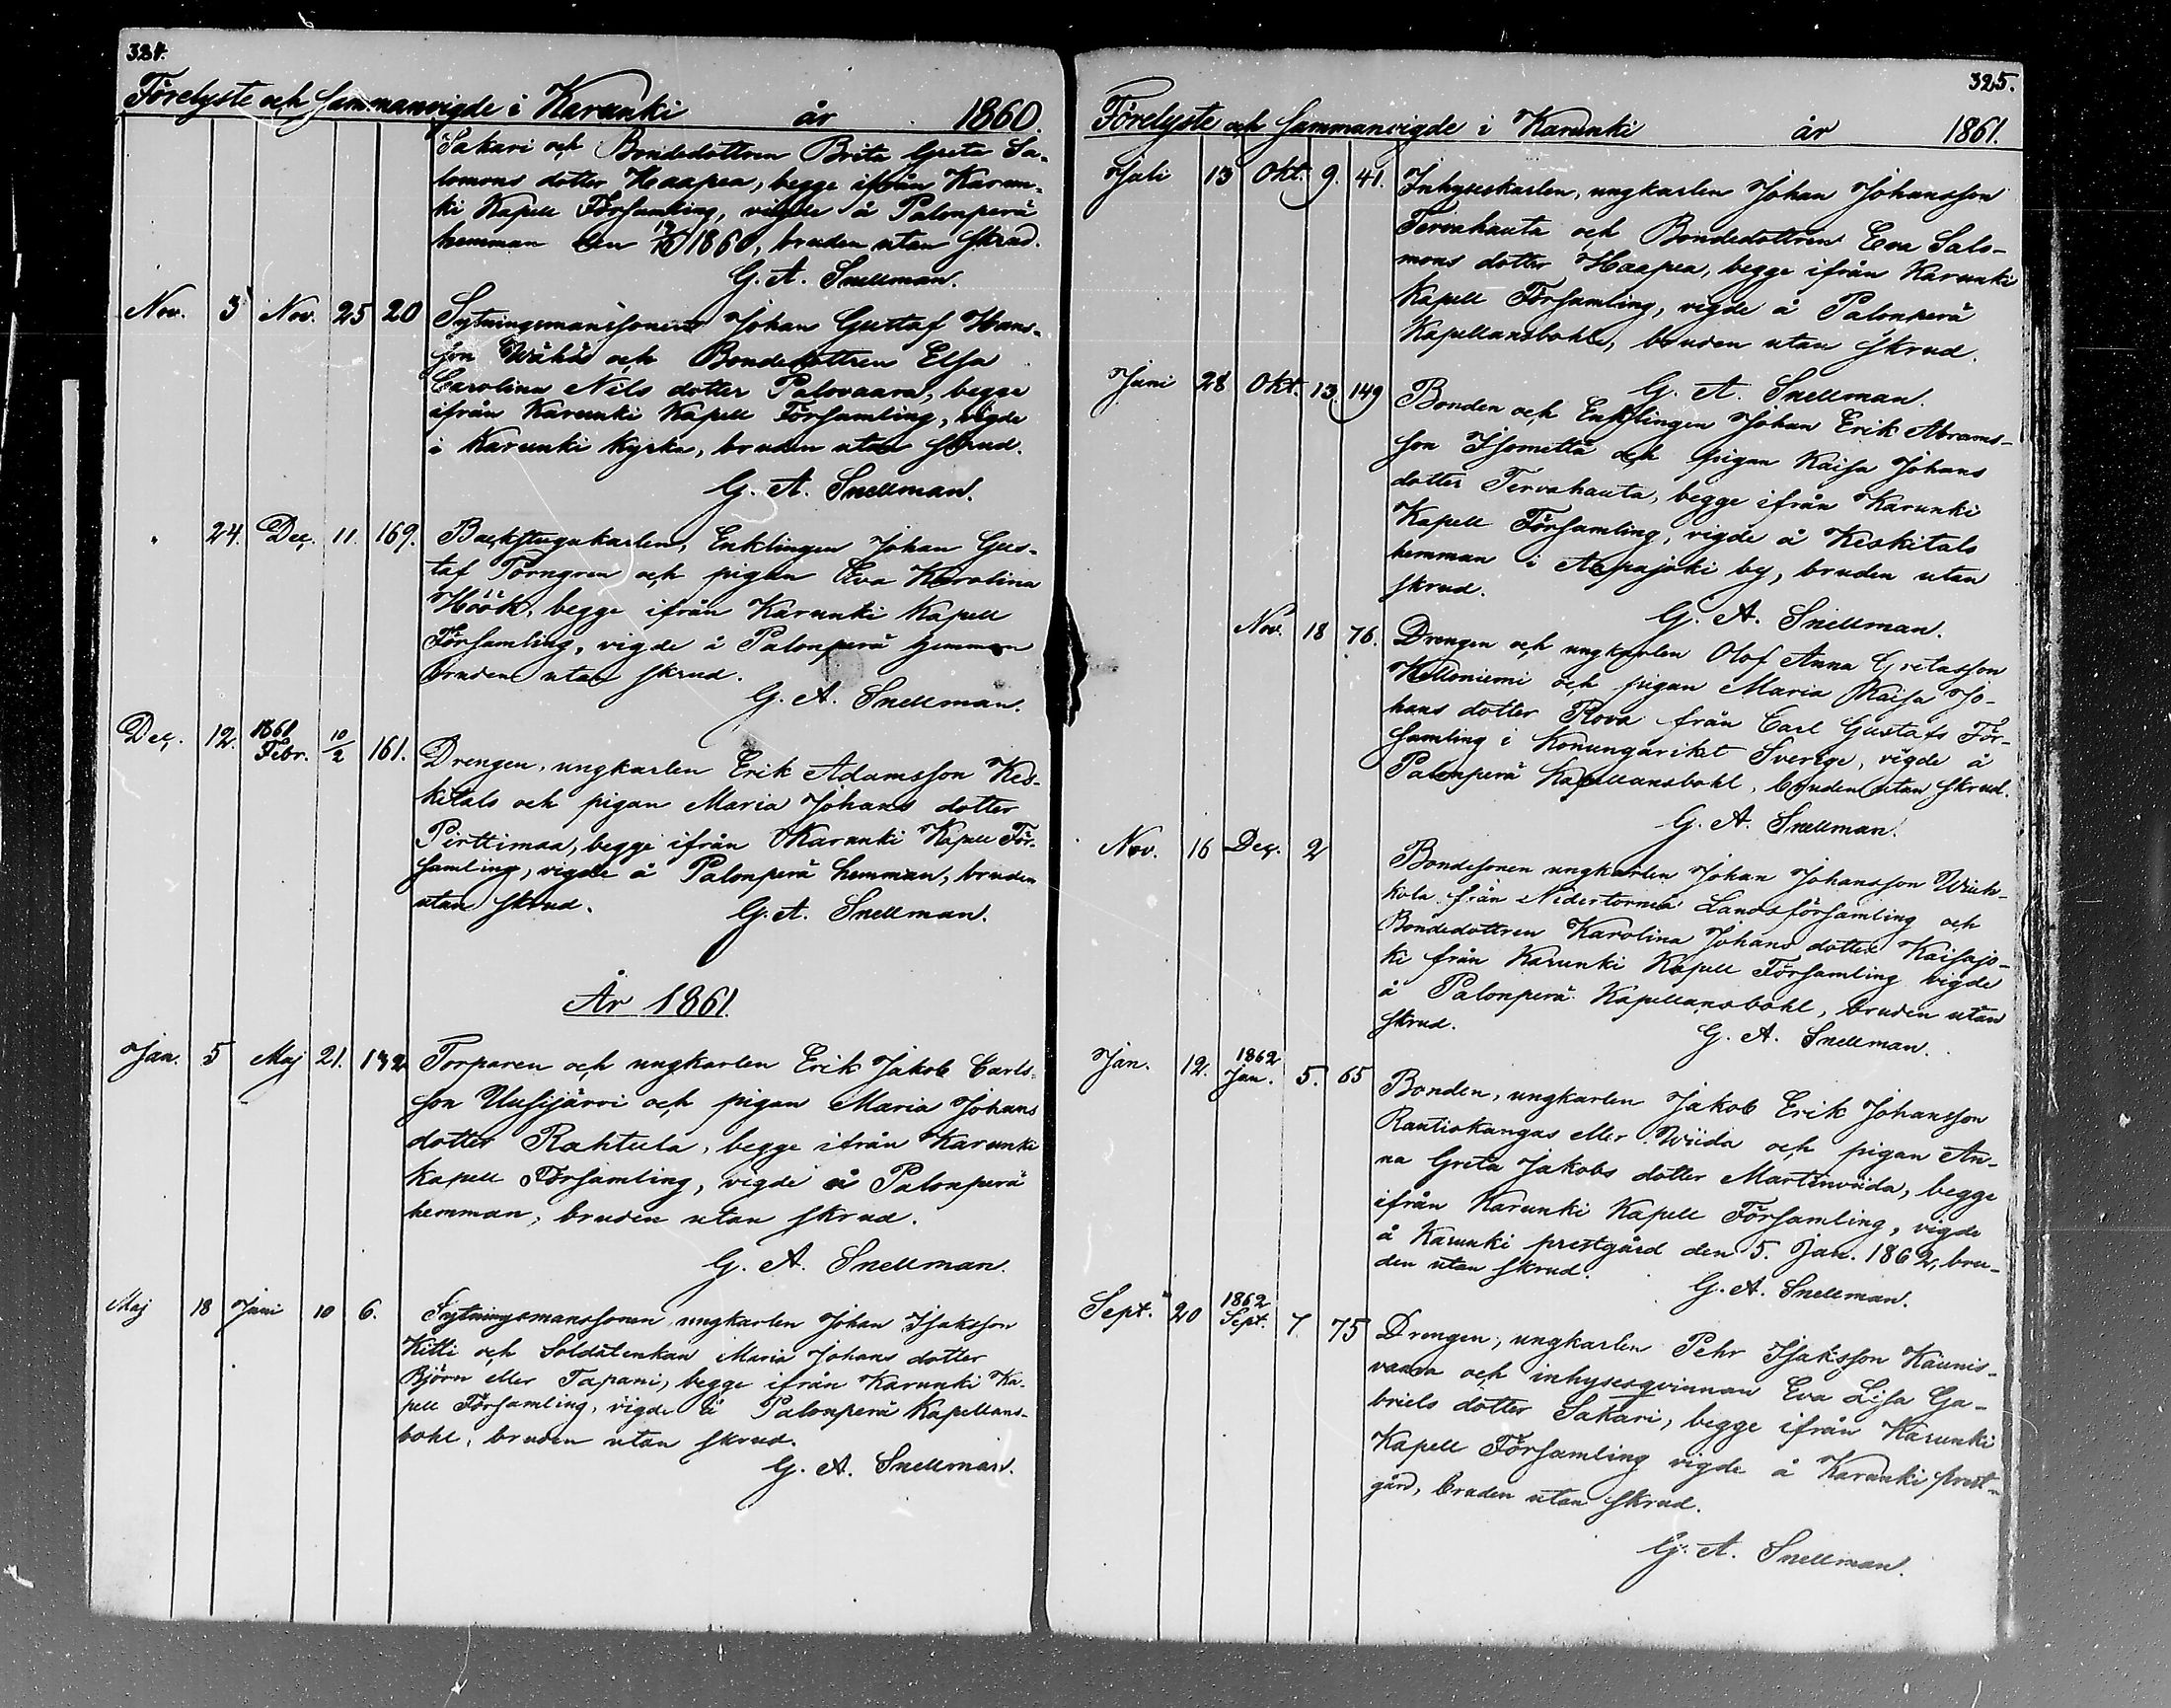 324.
Förelyste och Sammanvigde i Karunki år 1860.
Sakari och Bondedottren Brita Greta Sa-
lomons dotter Haapea, begge ifrån Karun-
ki Kapell Församling, vigde å Palonperä
hemman den 1860, bruden utan skrud.
G. A. Snellman.
Nov. 3 Nov. 25 20 Sytningsmanssonen Johan Gustaf Hans-
son Wähä och Bondedottren Elsa
Carolina Nils dotter Palovaara, begge
ifrån Karunki Kapell Församling, vigde
i Karunki Kyrka, bruden utan skrud.
G. A. Snellman.
" 24. Dec. 11. 169. Backstugukarlen, Enklingen Johan Gus-
taf Törngren och pigan Eva Karolina
Höök, begge ifrån Karunki Kapell
Församling, vigde å Palonperä hemman
bruden utan skrud.
G. A. Snellman.
Dec. 12. 1861 Febr. 10/2 161. Drengen, ungkarlen Erik Adamsson Kes-
kitalo och pigan Maria Johans dotter
Pirttimaa, begge ifrån Karunki Kapell För-
samling, vigde å Palonperä hemman, bruden
utan skrud.
G. A. Snellman.
År 1861
Jan. 5 Maj 21. 132 Torparen och ungkarlen Erik Jakob Carls-
son Uusijärvi och pigan Maria Johans
dotter Rahtula, begge ifrån Karunki
Kapell Församling, vigde å Palonperä
hemman, bruden utan skrud.
G. A. Snellman.
Maj 18 Juni 10 6. Sytningsmanssonen ungkarlen Johan Isaksson
Kitti och Soldatenkan Maria Johans dotter
Björn eller Tapani, begge ifrån Karunki Ka-
pell Församling, vigde å Palonperä Kapellans-
bohl, bruden utan skrud.
G. A. Snellman.
325.
Förelyste och Sammanvigde i Karunki år 1861.
Juli 13 Okt. 9. 41. Inhyseskarlen, ungkarlen Johan Johansson
Tervahauta och Bondedottren Eva Salo-
mons dotter Haapea, begge ifrån Karunki
Kapell Församling, vigde å Palonperä
Kapellansbohle, bruden utan skrud.
G. A. Snellman.
Juni 28 Okt. 13. 149 Bonden och Enklingen Johan Erik Abrams-
son Isometsä och pigan Kaisa Johans
dotter Tervahauta, begge ifrån Karunki
Kapell Församling, vigde å Keskitalo
hemman i Aapajoki by, bruden utan
skrud.
G. A. Snellman.
Nov. 18 76. Drengen och ungkarlen Olof Anna Gretasson
Kelloniemi och pigan Maria Kaisa Jo-
hans dotter Rova från Carl Gustafs För-
samling i Konungariket Sverige, vigde å
Palonperä Kapellansbohl, bruden utan skrud.
G. A. Snellman.
Nov. 16 Dec. 2 Bondesonen ungkarlen Johan Johansson Wieh-
kola från Nedertorneå Landsförsamling och
Bondedottren Karolina Johans dotter Kaisajo-
ki från Karunki Kapell Församling vigde
å Palonperä Kapellansbohl, bruden utan
skrud.
G. A. Snellman.
Jan. 12. 1862 Jan. 5. 65 Bonden, ungkarlen Jakob Erik Johansson
Rautiokangas eller Wiida och pigan An-
na Greta Jakobs dotter Martinviida, begge
ifrån Karunki Kapell Församling, vigde
å Karunki prestgård den 5. Jan. 1862, bru-
den utan skrud.
G. A. Snellman.
Sept. 20 1862 Sept. 7. 75 Drengen, ungkarlen Pehr Isaksson Kaunis-
vaara och inhysesqvinnan Eva Lisa Ga-
briels dotter Sakari, begge ifrån Karunki
Kapell Församling vigde å Karunki prest-
gård, bruden utan skrud.
G. A. Snellman.